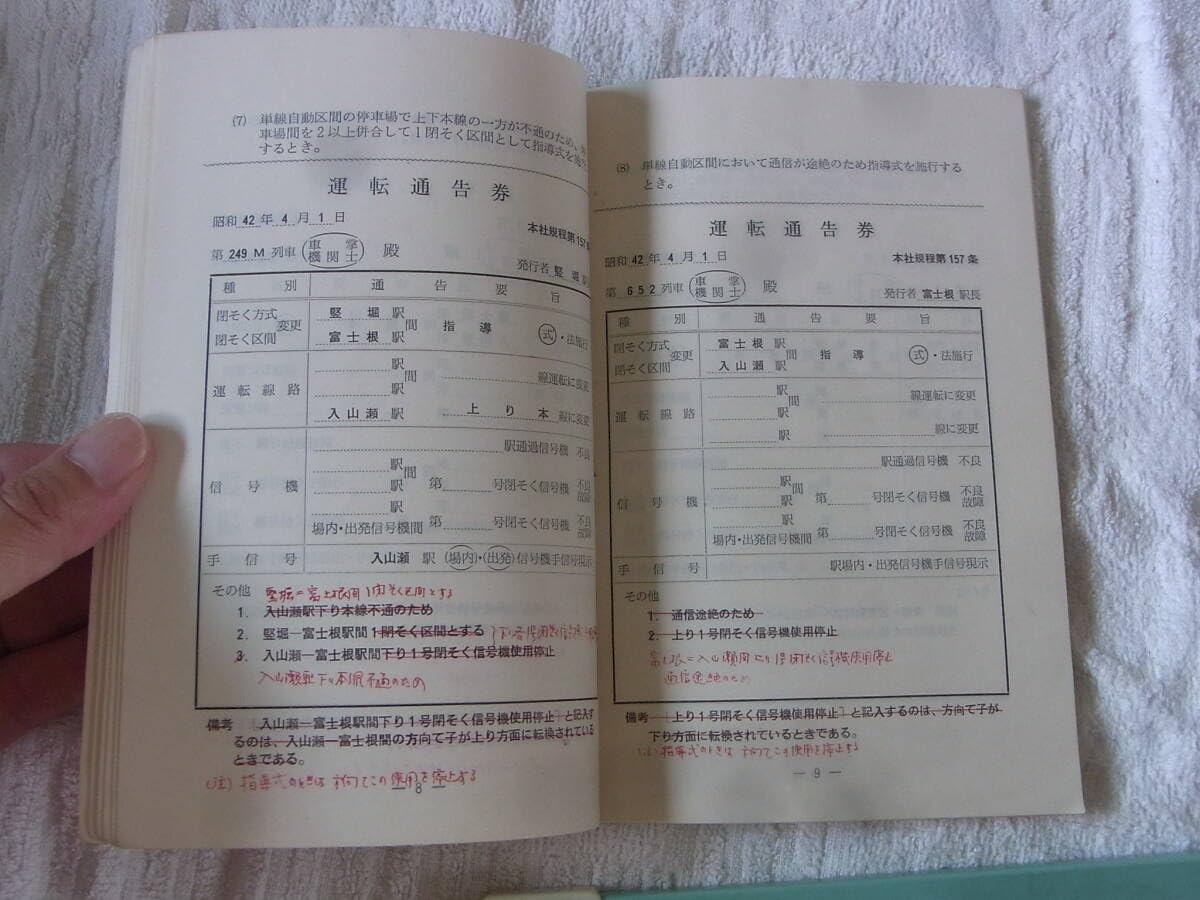 (7) 単線自動区間の停車場で上下本線の一方が不通のため、
車場間を2以上併合して1閉そく区間として指導式を施
するとき。
運転通告券
昭和 42 年 4 月 1 日
本社規程第157条
第 249 M 列車 車掌 機関士 殿
発行者 竪堀
種別 通告要旨
閉そく方式 閉そく区間 変更
竪堀 駅
富士根 駅
間 指導 式・法施行
運転線路
駅
駅
間 線運転に変更
入山瀬 駅 上り本 線に変更
信号機
駅通過信号機 不良
駅
駅
間 第 号閉そく信号機 不良 故障
駅
場内・出発信号機間 第 号閉そく信号機 不良 故障
手信号 入山瀬 駅 (場内)・(出発) 信号機手信号現示
その他 竪堀=富士根間1閉そく区間とする
1. 入山瀬駅下り本線不通のため
2. 竪堀―富士根駅間1閉そく区間とする
3. 入山瀬―富士根駅間下り1号閉そく信号機使用停止
入山瀬駅下り本線不通のため
備考 入山瀬―富士根駅間下り1号閉そく信号機使用停止」と記入す
るのは、入山瀬―富士根間の方向て子が上り方面に転換されている
ときである。
(注) 指導式のときは 方向てこの使用を停止する
― 8 ―
(8) 単線自動区間において通信が途絶のため指導式を施行する
とき。
運転通告券
昭和 42 年 4 月 1 日
本社規程第157条
第 652 列車 車掌 機関士 殿
発行者 富士根 駅長
種別 通告要旨
閉そく方式 閉そく区間 変更
富士根 駅
入山瀬 駅
間 指導 式・法施行
運転線路
駅
駅
間 線運転に変更
駅 線に変更
信号機
駅通過信号機 不良
駅
駅
間 第 号閉そく信号機 不良 故障
駅
場内・出発信号機間 第 号閉そく信号機 不良 故障
手信号 駅場内・出発信号機手信号現示
その他
1. 通信途絶のため
2. 上り1号閉そく信号機使用停止
富士根=入山瀬間上り1号閉そく信号機使用停止
通信途絶のため
備考 「上り1号閉そく信号機使用停止」と記入するのは、方向て子が
下り方面に転換されているときである。
(注) 指導式のときは 方向てこの使用を停止する
― 9 ―